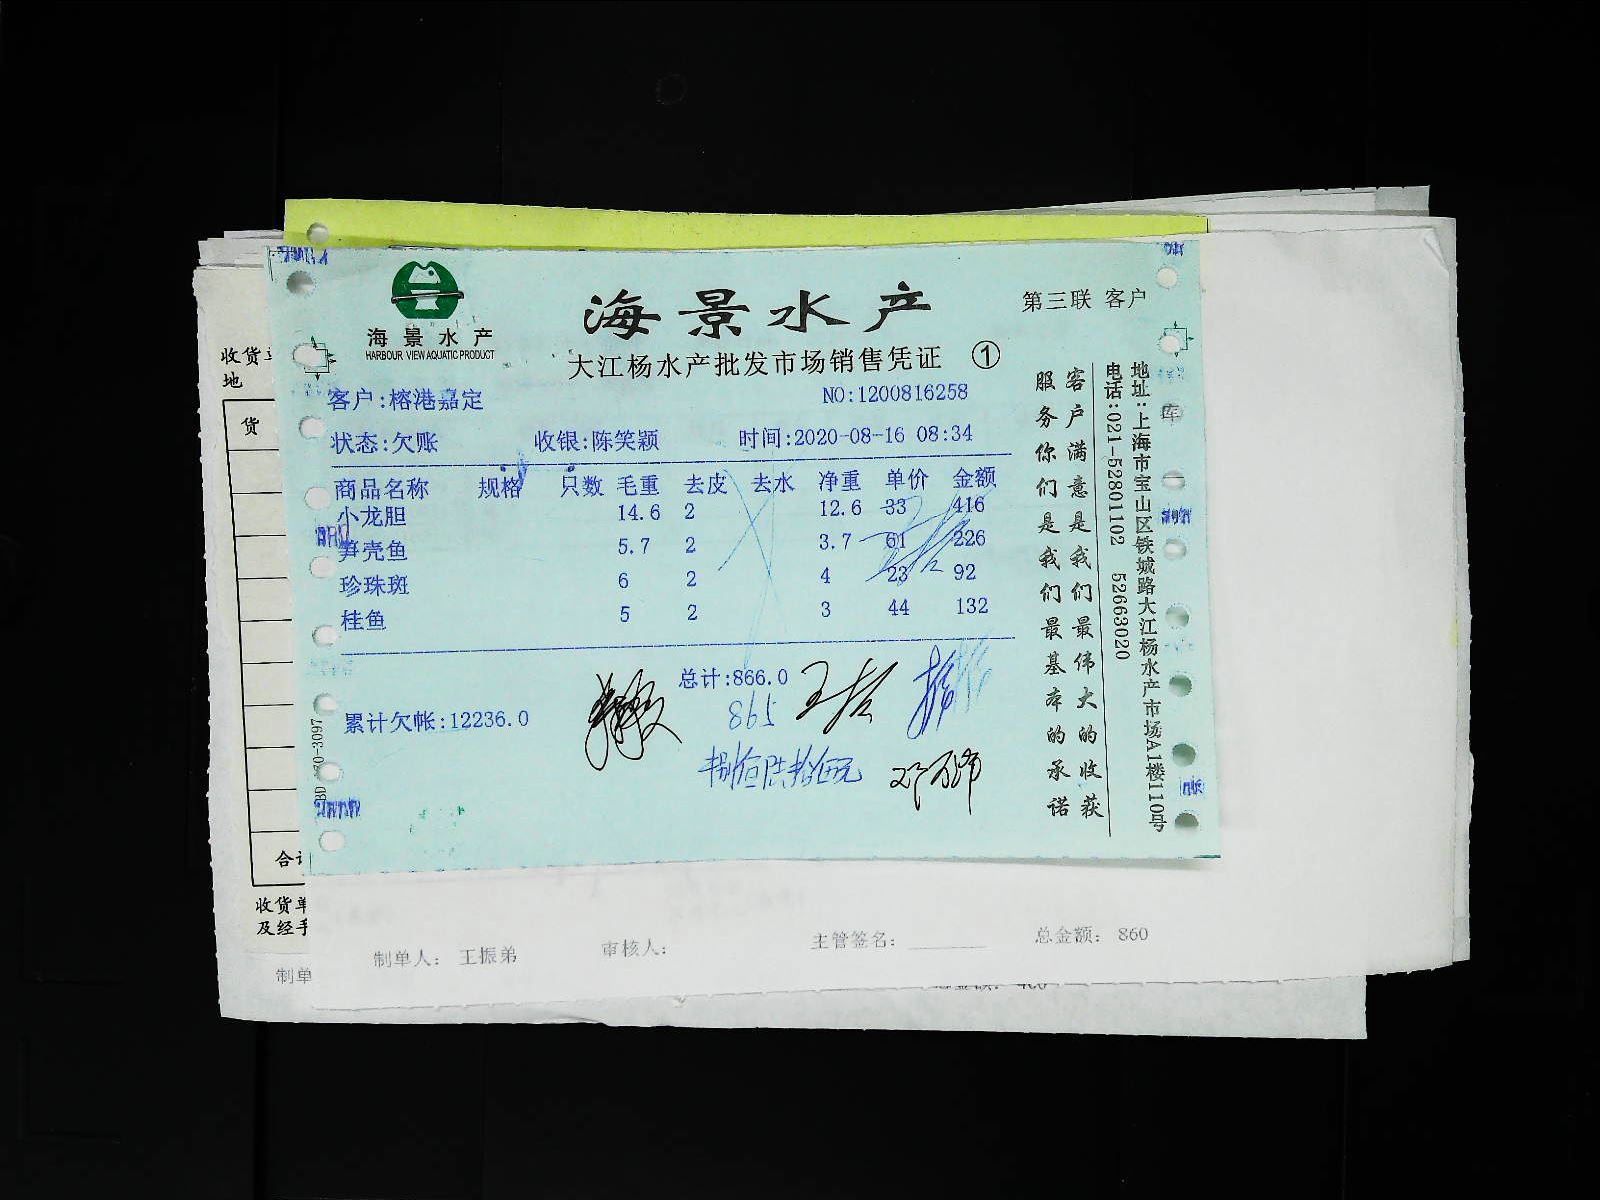 海景水产
HARBOUR VIEW AQUATIC PRODUCT
海景水产
第三联 客户
大江杨水产批发市场销售凭证 ①
客户:榕港嘉定
NO:1200816258
状态:欠账 收银:陈笑颖 时间:2020-08-16 08:34
商品名称 规格 只数 毛重 去皮 去水 净重 单价 金额
小龙胆 14.6 2 12.6 33 416
笋壳鱼 5.7 2 3.7 61 226
珍珠斑 6 2 4 23 92
桂鱼 5 2 3 44 132
总计:866.0
865
累计欠帐:12236.0
捌佰陆拾伍元
客户满意是我们最伟大的收获
服务你们是我们最基本的承诺
地址:上海市宝山区铁城路大江杨水产市场A1楼110号
电话:021-52801102 52663020
收货单
地
货
合计
收货单
及经手
制单
制单人: 王振弟 审核人: 主管签名: 总金额: 860